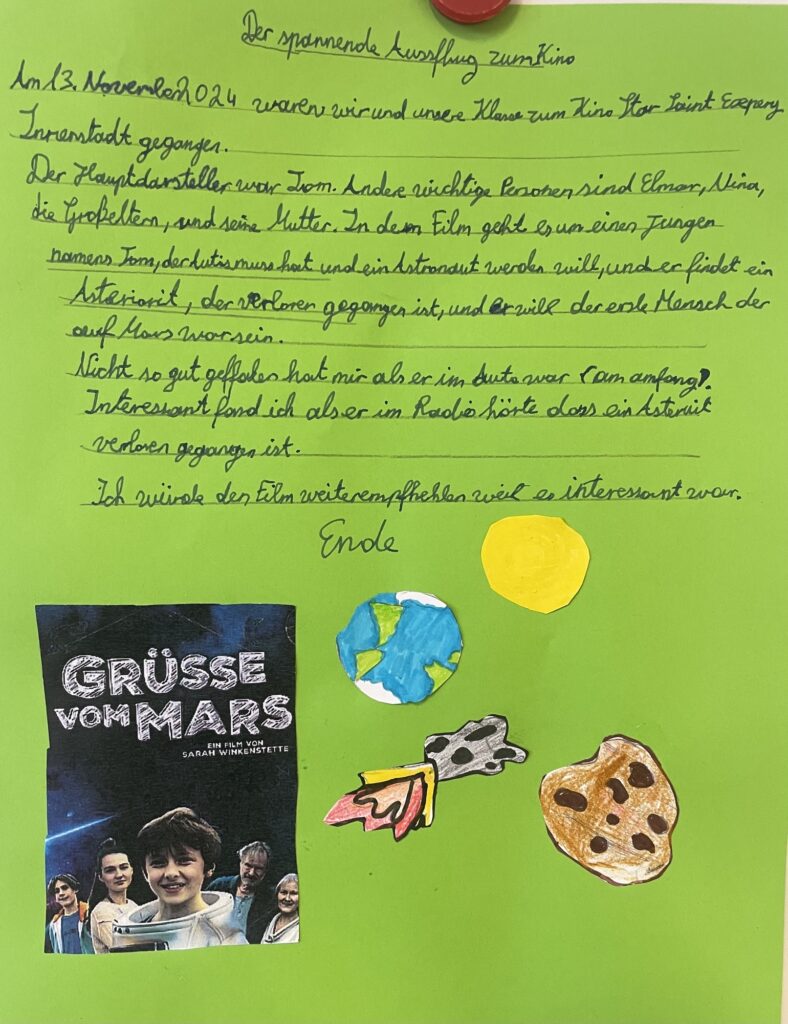 Der spannende Aussflug zum Kino
Am 13. November 2024 waren wir und unsere Klasse zum Kino Star Saint Exepery
Innenstadt gegangen.
Der Hauptdarsteller war Tom. Andere wichtige Personen sind Elmar, Nina,
die Großeltern, und seine Mutter. In dem Film geht es um einen Jungen
namens Tom, der Autismuss hat und ein Astronaut werden will, und er findet ein
Asteriorit, der verloren gegangen ist, und er will der erste Mensch der
auf Mars war sein.
Nicht so gut geffalen hat mir als er im Auto war (am amfang).
Interessant fand ich als er im Radio hörte dass ein Asteruit
verloren gegangen ist.
Ich würde den Film weiterempfhehlen weil es interessant war.
Ende
GRÜSSE
VOM MARS
EIN FILM VON
SARAH WINKENSTETTE